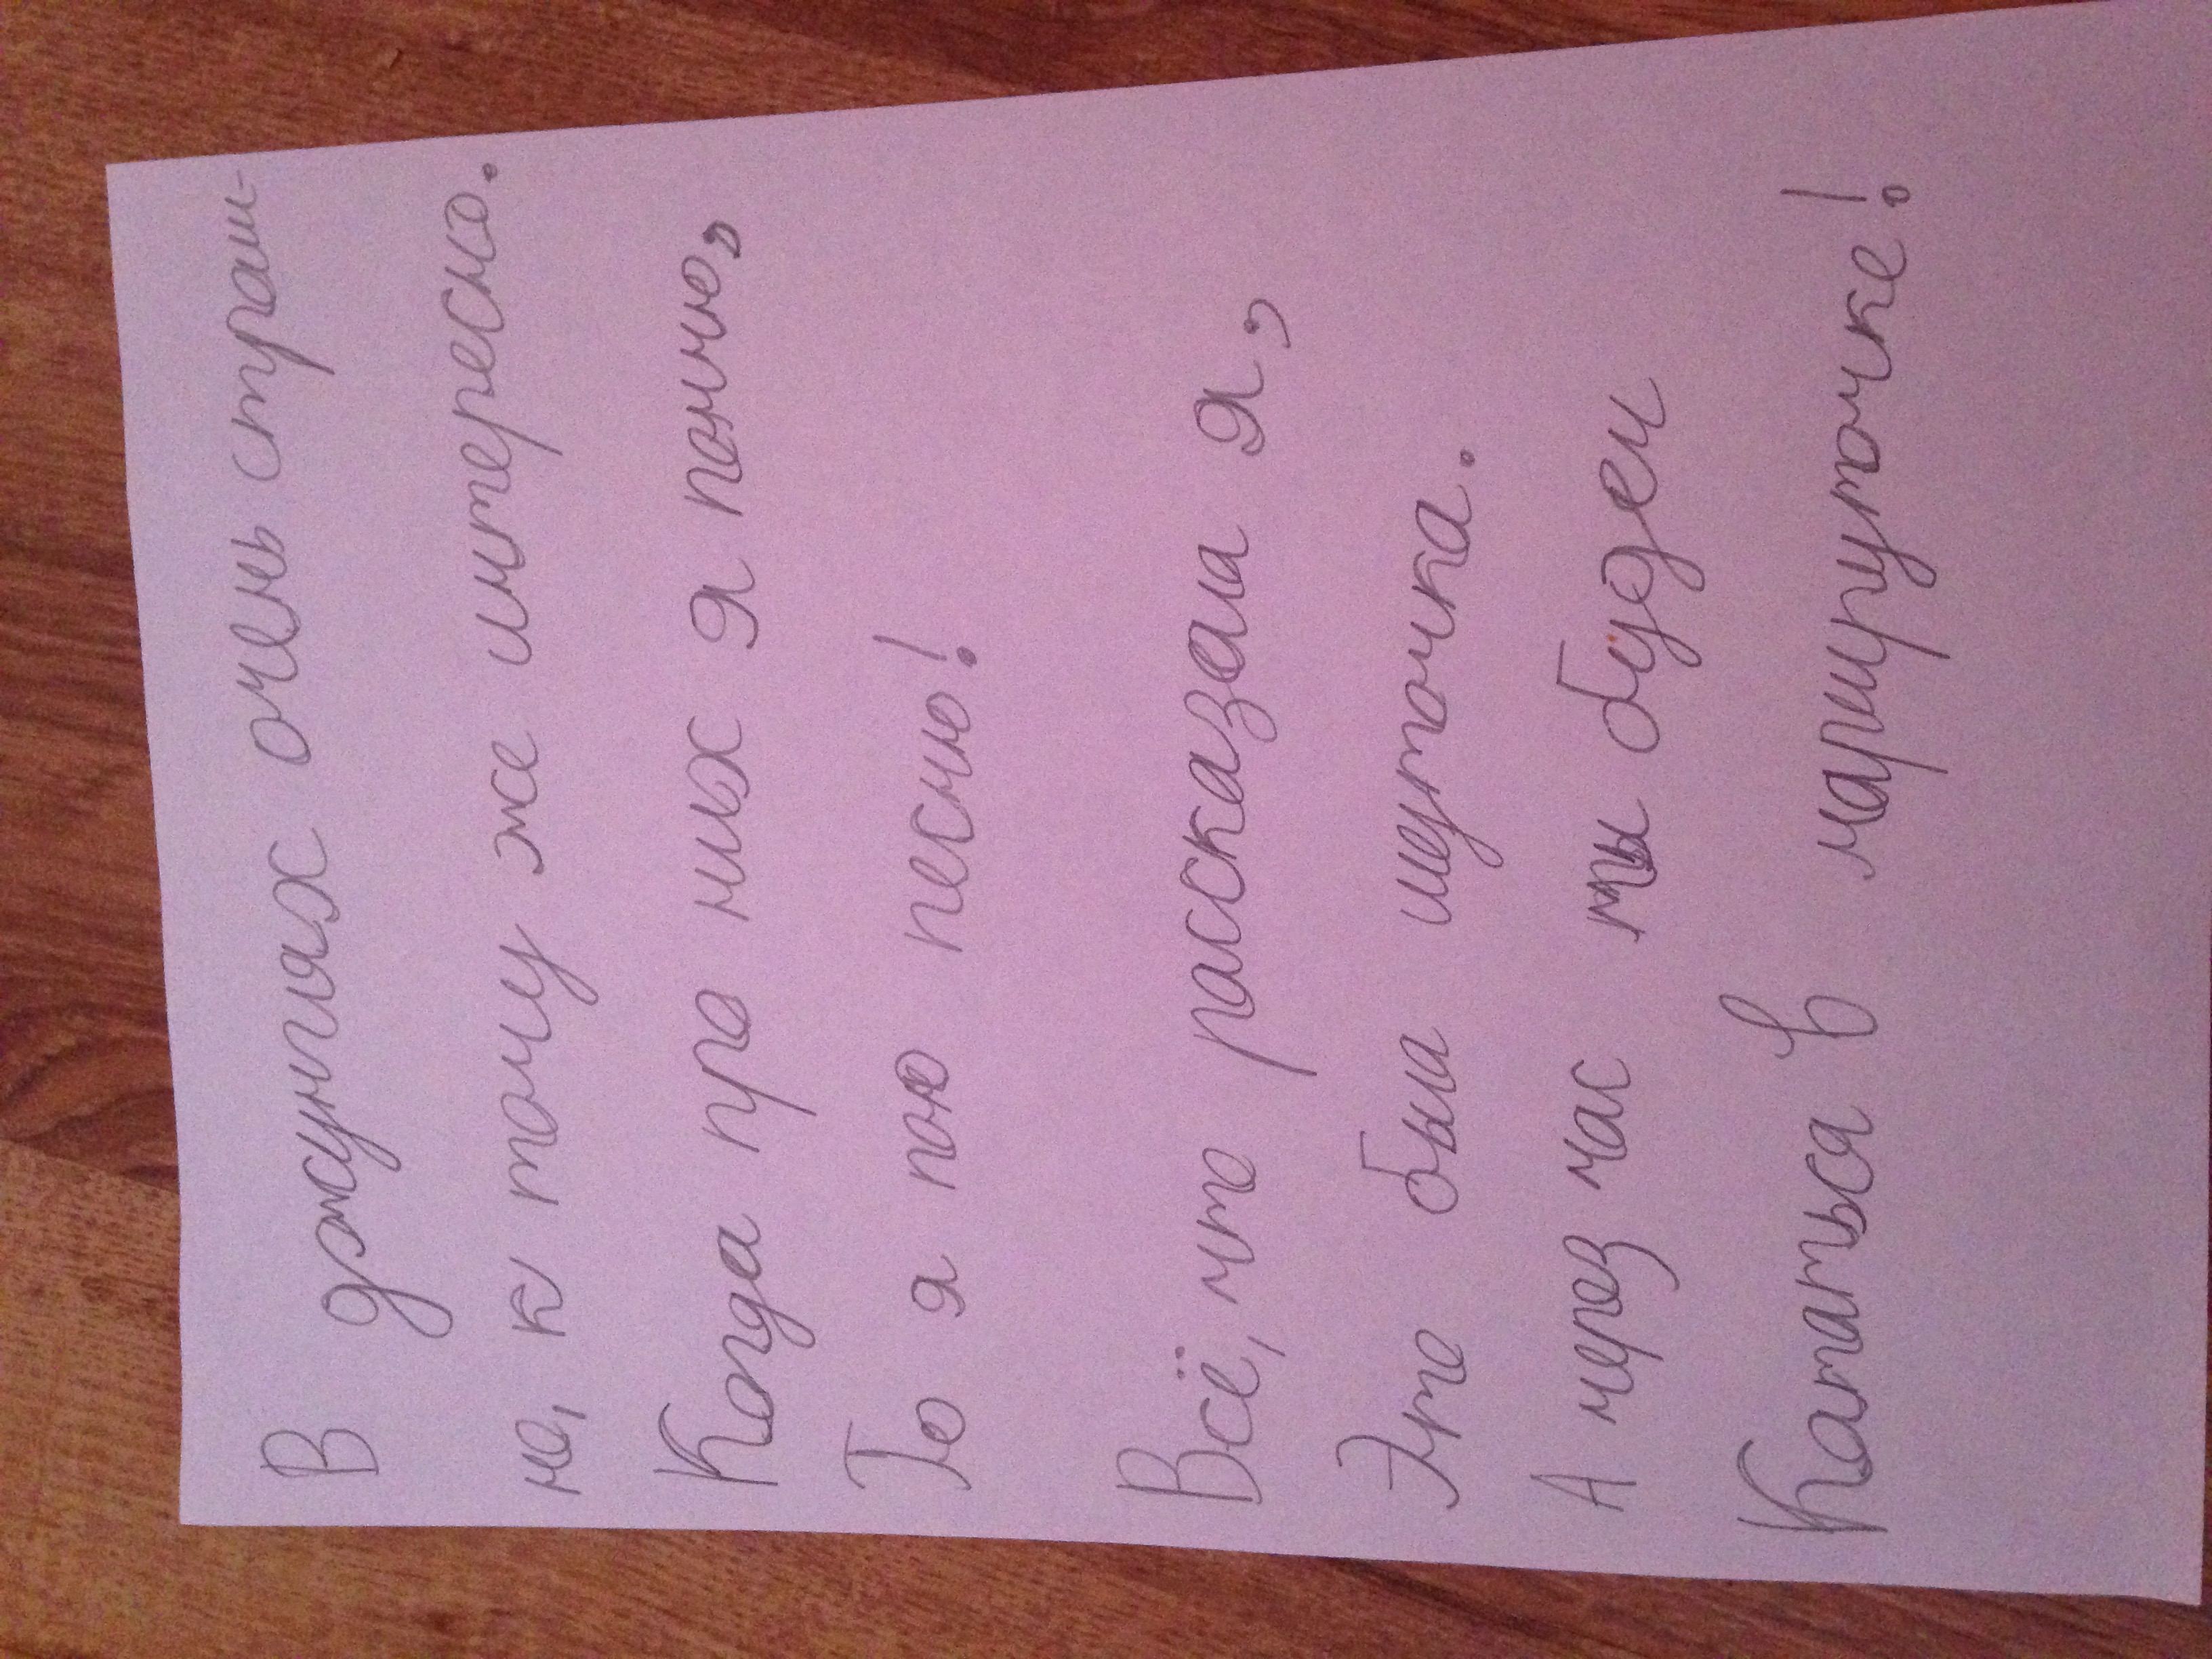 В джунглях очень страш-
но, к тому же интересно.
Когда про них я помню,
То я пою песню!
Всё, что рассказала я,
Это была шуточка.
А через час мы будем
Кататься в маршруточке!